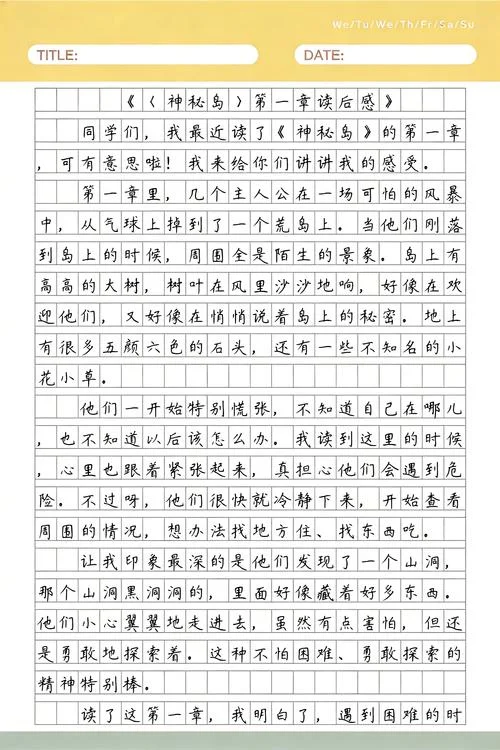 We/Tu/We/Th/Fr/Sa/Su
TITLE: DATE:
《〈神秘岛〉第一章读后感》
同学们，我最近读了《神秘岛》的第一章
，可有意思啦！我来给你们讲讲我的感受。
第一章里，几个主人公在一场可怕的风暴
中，从气球上掉到了一个荒岛上。当他们刚落
到岛上的时候，周围全是陌生的景象。岛上有
高高的大树，树叶在风里沙沙地响，好像在欢
迎他们，又好像在悄悄说着岛上的秘密。地上
有很多五颜六色的石头，还有一些不知名的小
花小草。
他们一开始特别慌张，不知道自己在哪儿
，也不知道以后该怎么办。我读到这里的时候
，心里也跟着紧张起来，真担心他们会遇到危
险。不过呀，他们很快就冷静下来，开始查看
周围的情况，想办法找地方住、找东西吃。
让我印象最深的是他们发现了一个山洞，
那个山洞黑洞洞的，里面好像藏着好多东西。
他们小心翼翼地走进去，虽然有点害怕，但还
是勇敢地探索着。这种不怕困难、勇敢探索的
精神特别棒。
读了这第一章，我明白了，遇到困难的时